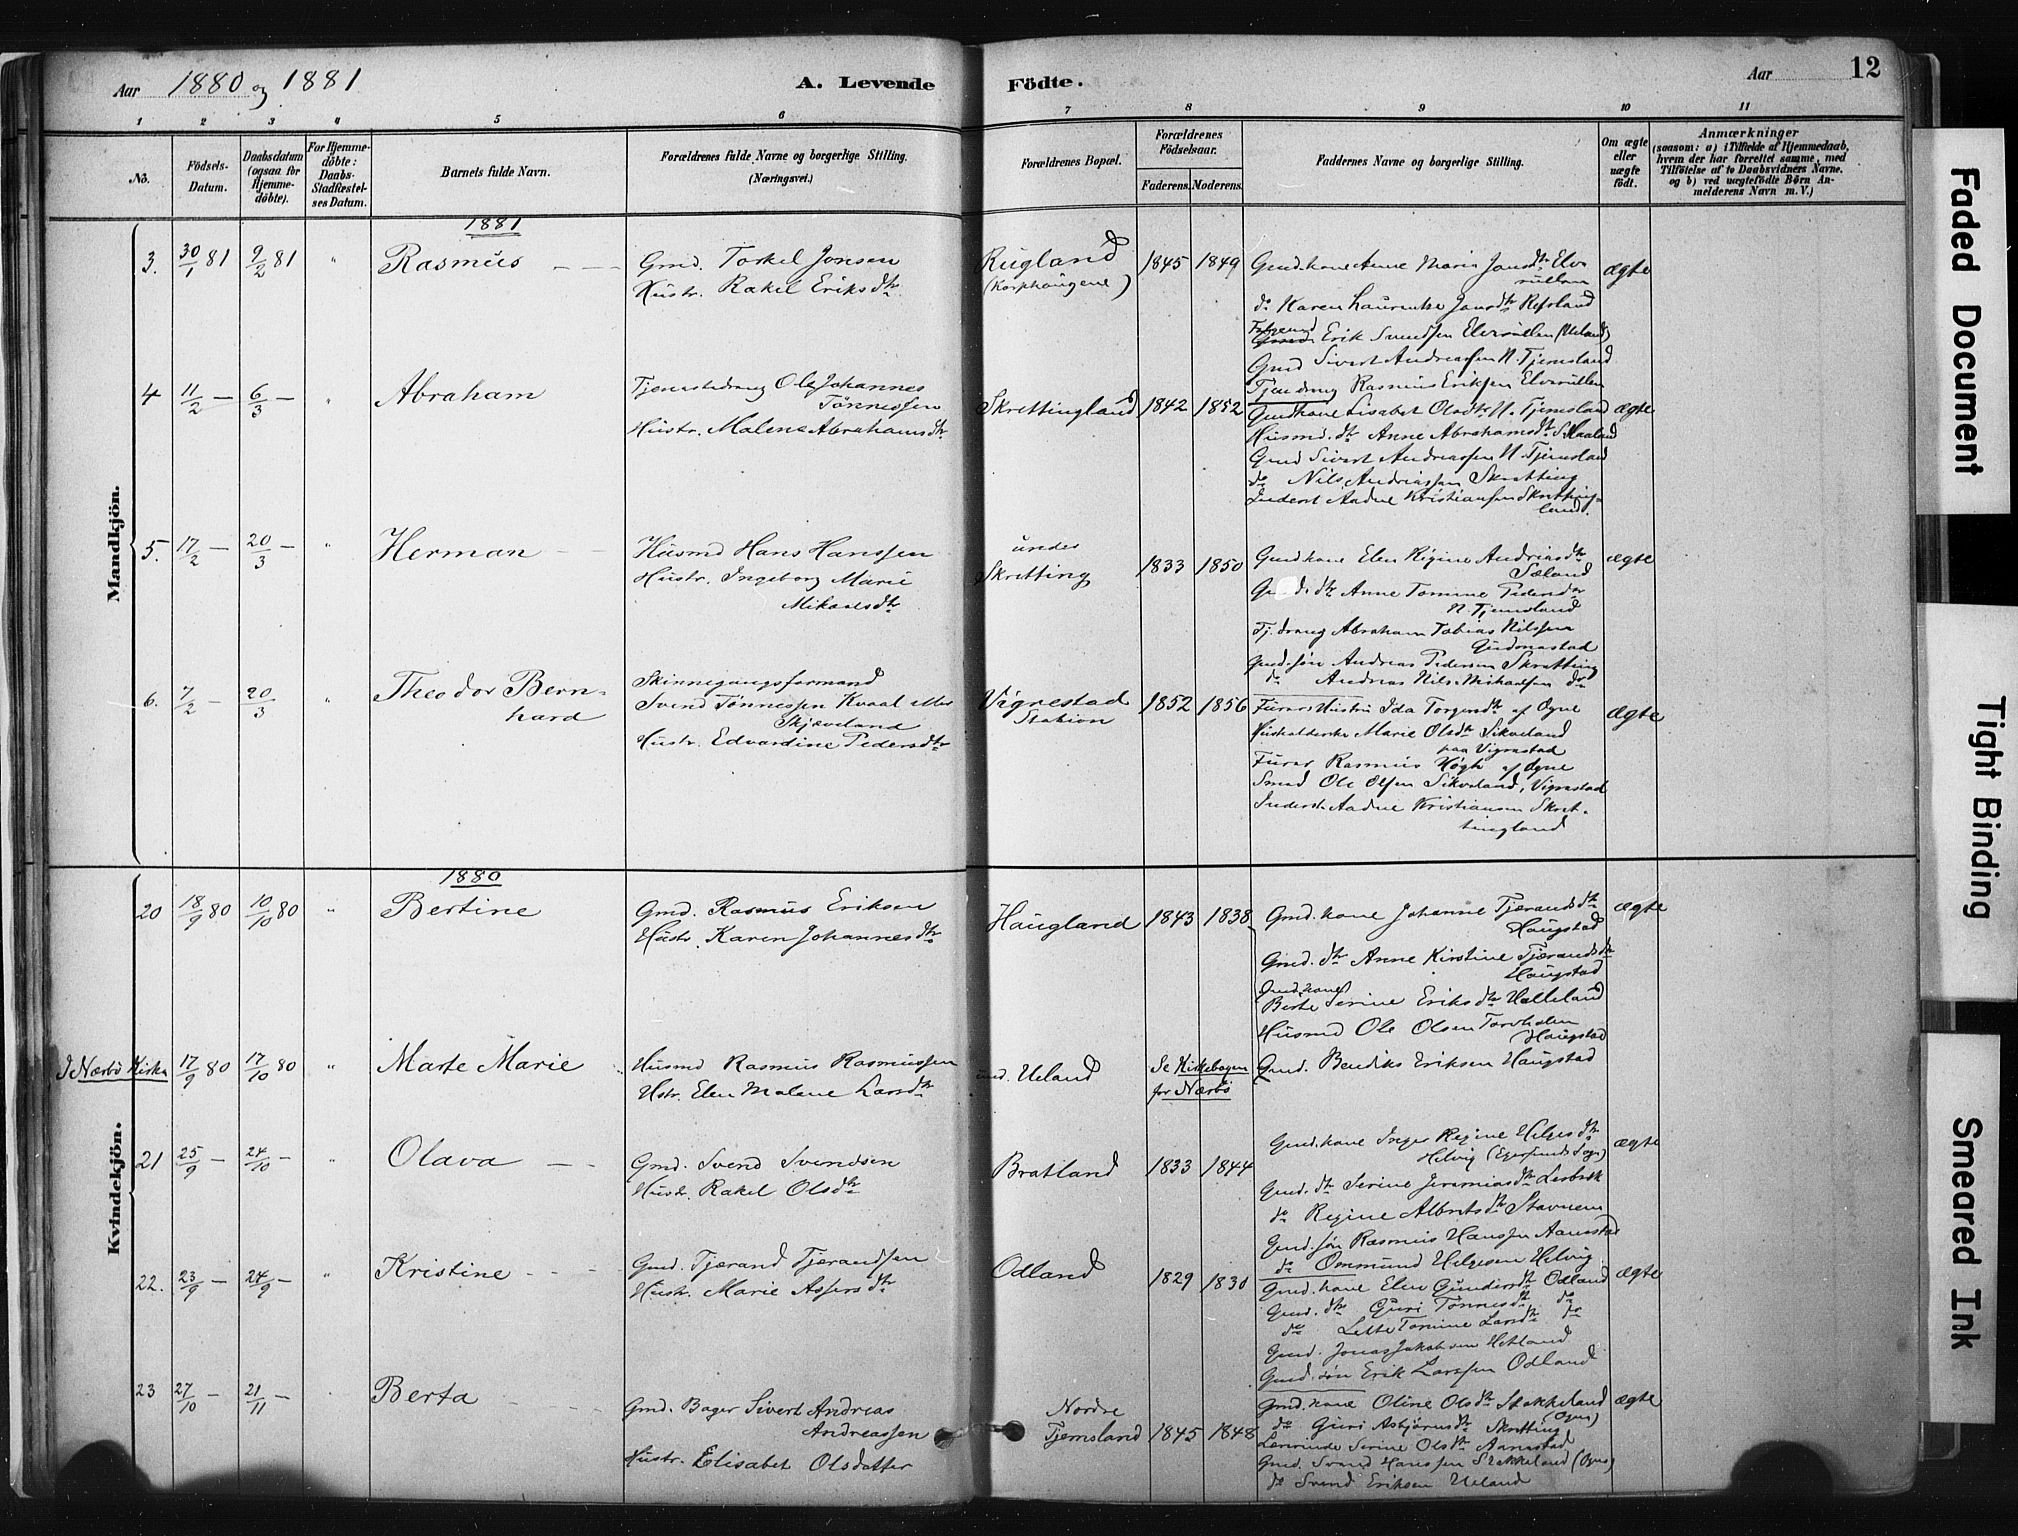 Aar 1880 og 1881
A. Levende Födte.
Aar 12
1 2 3 4 5 6 7 8 9 10 11
No.
Födsels-Datum.
Daabsdatum (ogsaa for Hjemme-döbte).
For Hjemme-döbte: Daabs-Stadfæstel-ses Datum.
Barnets fulde Navn.
Forældrenes fulde Navne og borgerlige Stilling. (Næringsvei.)
Forældrenes Bopæl.
Forældrenes Födselsaar.
Faderens. Moderens.
Faddernes Navne og borgerlige Stilling.
Om ægte eller uægte födt.
Anmærkninger
(saasom: a) i Tilfælde af Hjemmedaab, hvem der har forrettet samme, med Tilföielse af to Daabsvidners Navne, og b) ved uægtefödte Börn An-melderens Navn m. V.)
Mandkjön.
1881
3. 30/1 81 9/2 81 " Rasmus
Gmd. Torkel Jonsen
Hustr. Rakel Eriksdtr
Rugland
(Korphaugene)
1845 1849
Gmd.kone Anne Maria Jonsdtr
do Karen Laurentze Jonsdtr Refsland
Erik Svendsen Elverullen (Ueland)
Gmd Sivert Andreassen N. Tjemsland
Tjendreng Rasmus Eriksen Elverullen
ægte
4 11/2 — 6/3 — " Abraham
Ole Johannes
Tönnessen
Hustr. Malene Abrahamsdtr
Skrettingland 1842 1852
Gmdkone Lisabet Olsdtr N. Tjemsland
Husmd. dtr Anne Abrahamsdtr S. Haaland
Gmd Sivert Andreassen N. Tjemsland
do Nils Andreassen Skretting
Inderst Aadne Kristiansen Skretting-
land.
ægte
5. 17/2 — 20/3 — " Herman
Husmd Hans Hanssen
Hustr. Ingeborg Marie
Mikaelsdtr
under
Skretting
1833 1850
Gmdkone Elen Regine Andreasdtr
Sæland
Anne Tomine Pedersdtr
N. Tjemsland
Tj. dreng Abraham Tobias Nilssen
Gudmestad
Gmd.søn Andreas Pedersen Skretting
do Andreas Nils Mikaelsen do
ægte
6. 7/2 — 20/3 " Theodor Bern-
hard
Skinnegangsformand
Svend Tönnessen Kvaal eller
Skjæveland
Hustr. Edvardine Pedersdtr
Vigrestad
Station
1852 1856
Furers Hustru Ida Torgersdtr af Ogne
Husholderske Marie Olsdtr Sikveland
paa Vigrestad
Furer Rasmus Høgh af Ogne
Smed Ole Olsen Sikveland, Vigrestad
Inderst Aadne Kristiansen Skret-
tingland
ægte
Kvindekjön.
1880
20 18/9 80 10/10 80 " Bertine
Gmd. Rasmus Eriksen
Hustr. Karen Johannesdtr
Haugland 1843 1838
Gmd. kone Johanne Tjærandsdtr
Haugstad
Gmd. dtr Anne Kirstine Tjærandsdtr
Haugstad
Gmd.kone
Berte Serine Eriksdtr Hælleland
Husmd Ole Olsen Torvholen
Haugstad
Gmd. Bendiks Eriksen Haugstad
ægte
I Nærbö Kirke 17/9 80 17/10 80 " Marte Marie
Husmd Rasmus Rasmussen
Hstr. Elen Malene Larsdtr
und. Ueland
Se Kirkebogen
for Nærbö
21 25/9 — 24/10 — " Olava
Gmd. Svend Svendsen
Hustr. Rakel Olsdtr
Bratland 1833 1844
Gmd.kone Inger Regine Helgesdtr
Helvig (Egersunds Sogn)
Gmd. dtr Serine Jeremiasdtr
do Regine Albretsdtr Stavnem
Gmd. søn Rasmus Hanssen Aanestad
do Ommund Helgesen Helvig
ægte
22. 23/9 — 24/9 — " Kristine
Gmd. Tjærand Tjærandsen
Hustr. Marie Assersdtr
Odland 1829 1830
Gmd. kone Elen Gundersdtr Odland
Gmd. dtr Guri Tönnesdtr do
do Lette Tomine Larsdtr do
Gmd. Jonas Jakobsen Hetland
Gmd. søn Erik Larssen Odland
ægte
23 27/10 — 21/11 — Berta
Gmd. Bager Sivert Andreas
Andreassen
Hustr. Elisabet Olsdatter
Nordre
Tjemsland 1845 1848
Gmd. kone Oline Olsdtr Stokkeland
(Ogne)
do Guri Asbjørnsdtr Skretting
Serine Olsdtr Aanestad
Gmd. Svend Hanssen Stokkeland (Ogne)
do Svend Eriksen Ueland
ægte
Faded Document
Tight Binding
Smeared Ink